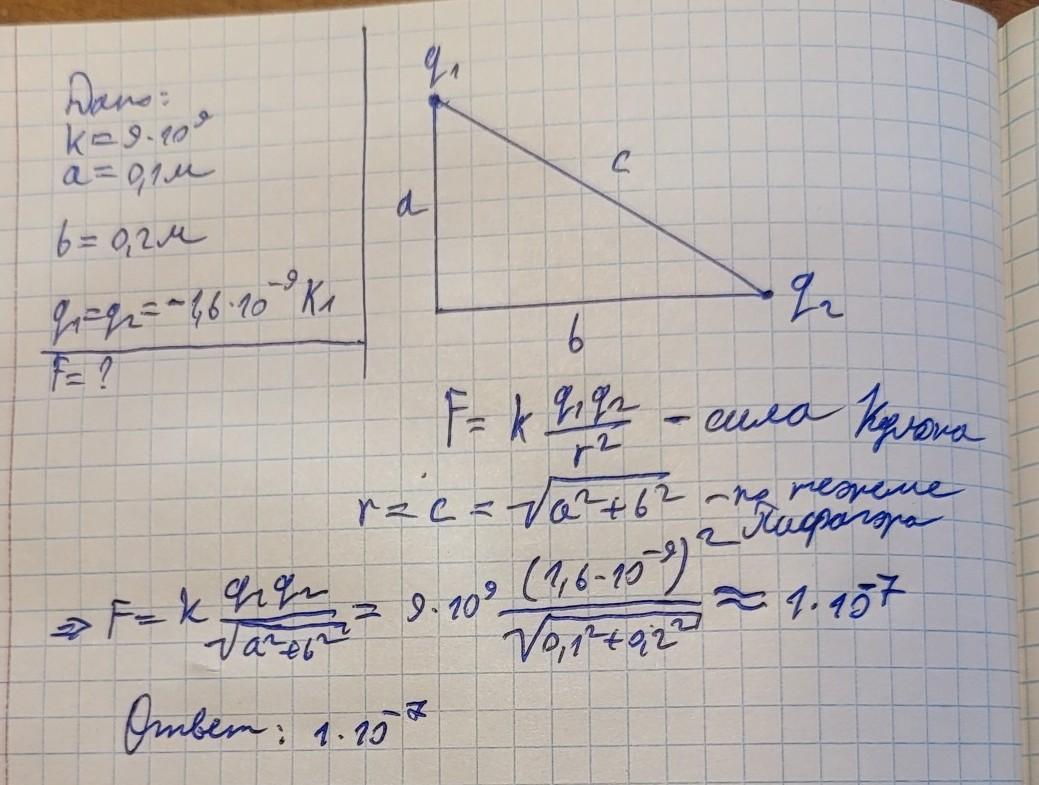 Дано:
k = 9·10⁹
a = 0,1 м
b = 0,2 м
q₁=q₂= -1,6·10⁻⁹ Кл
F = ?
q₁
a
c
b
q₂
F = k q₁q₂/r² - сила Кулона
r = c = √(a²+b²) - по теореме
Пифагора
⇒ F = k q₁q₂/√(a²+b²) = 9·10⁹ (1,6·10⁻⁹)²/√(0,1²+0,2²) ≈ 1·10⁻⁷
Ответ: 1·10⁻⁷